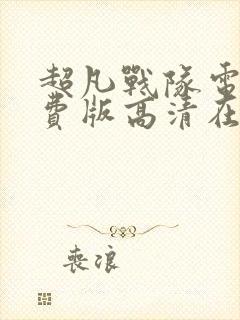 超凡戰隊電
費版高清在
喪浪